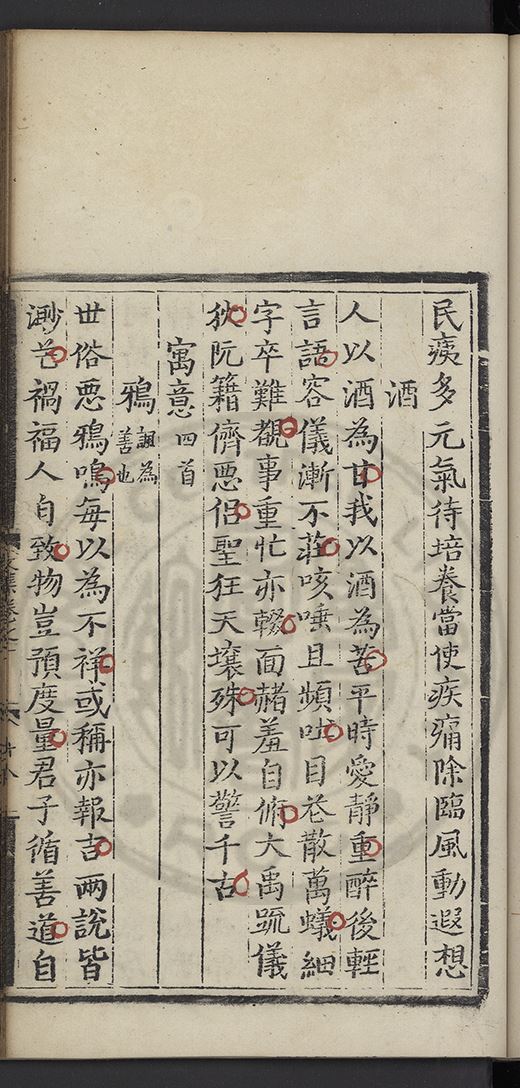 民痍多元氣待培養當使疾痛除臨風動遐想
酒
人以酒為甘我以酒為苦平時愛靜重醉後輕
言語容儀漸不莊咳唾且頻吐目花散萬蟻細
字卒難覩事重忙亦輟面赭羞自俯大禹疏儀
狄阮籍儕惡侶聖狂天壤殊可以警千古
寓意四首
鴉 諷為善也
世俗惡鴉鳴每以為不祥或稱亦報吉兩說皆
渺茫禍福人自致物豈預度量君子循善道自